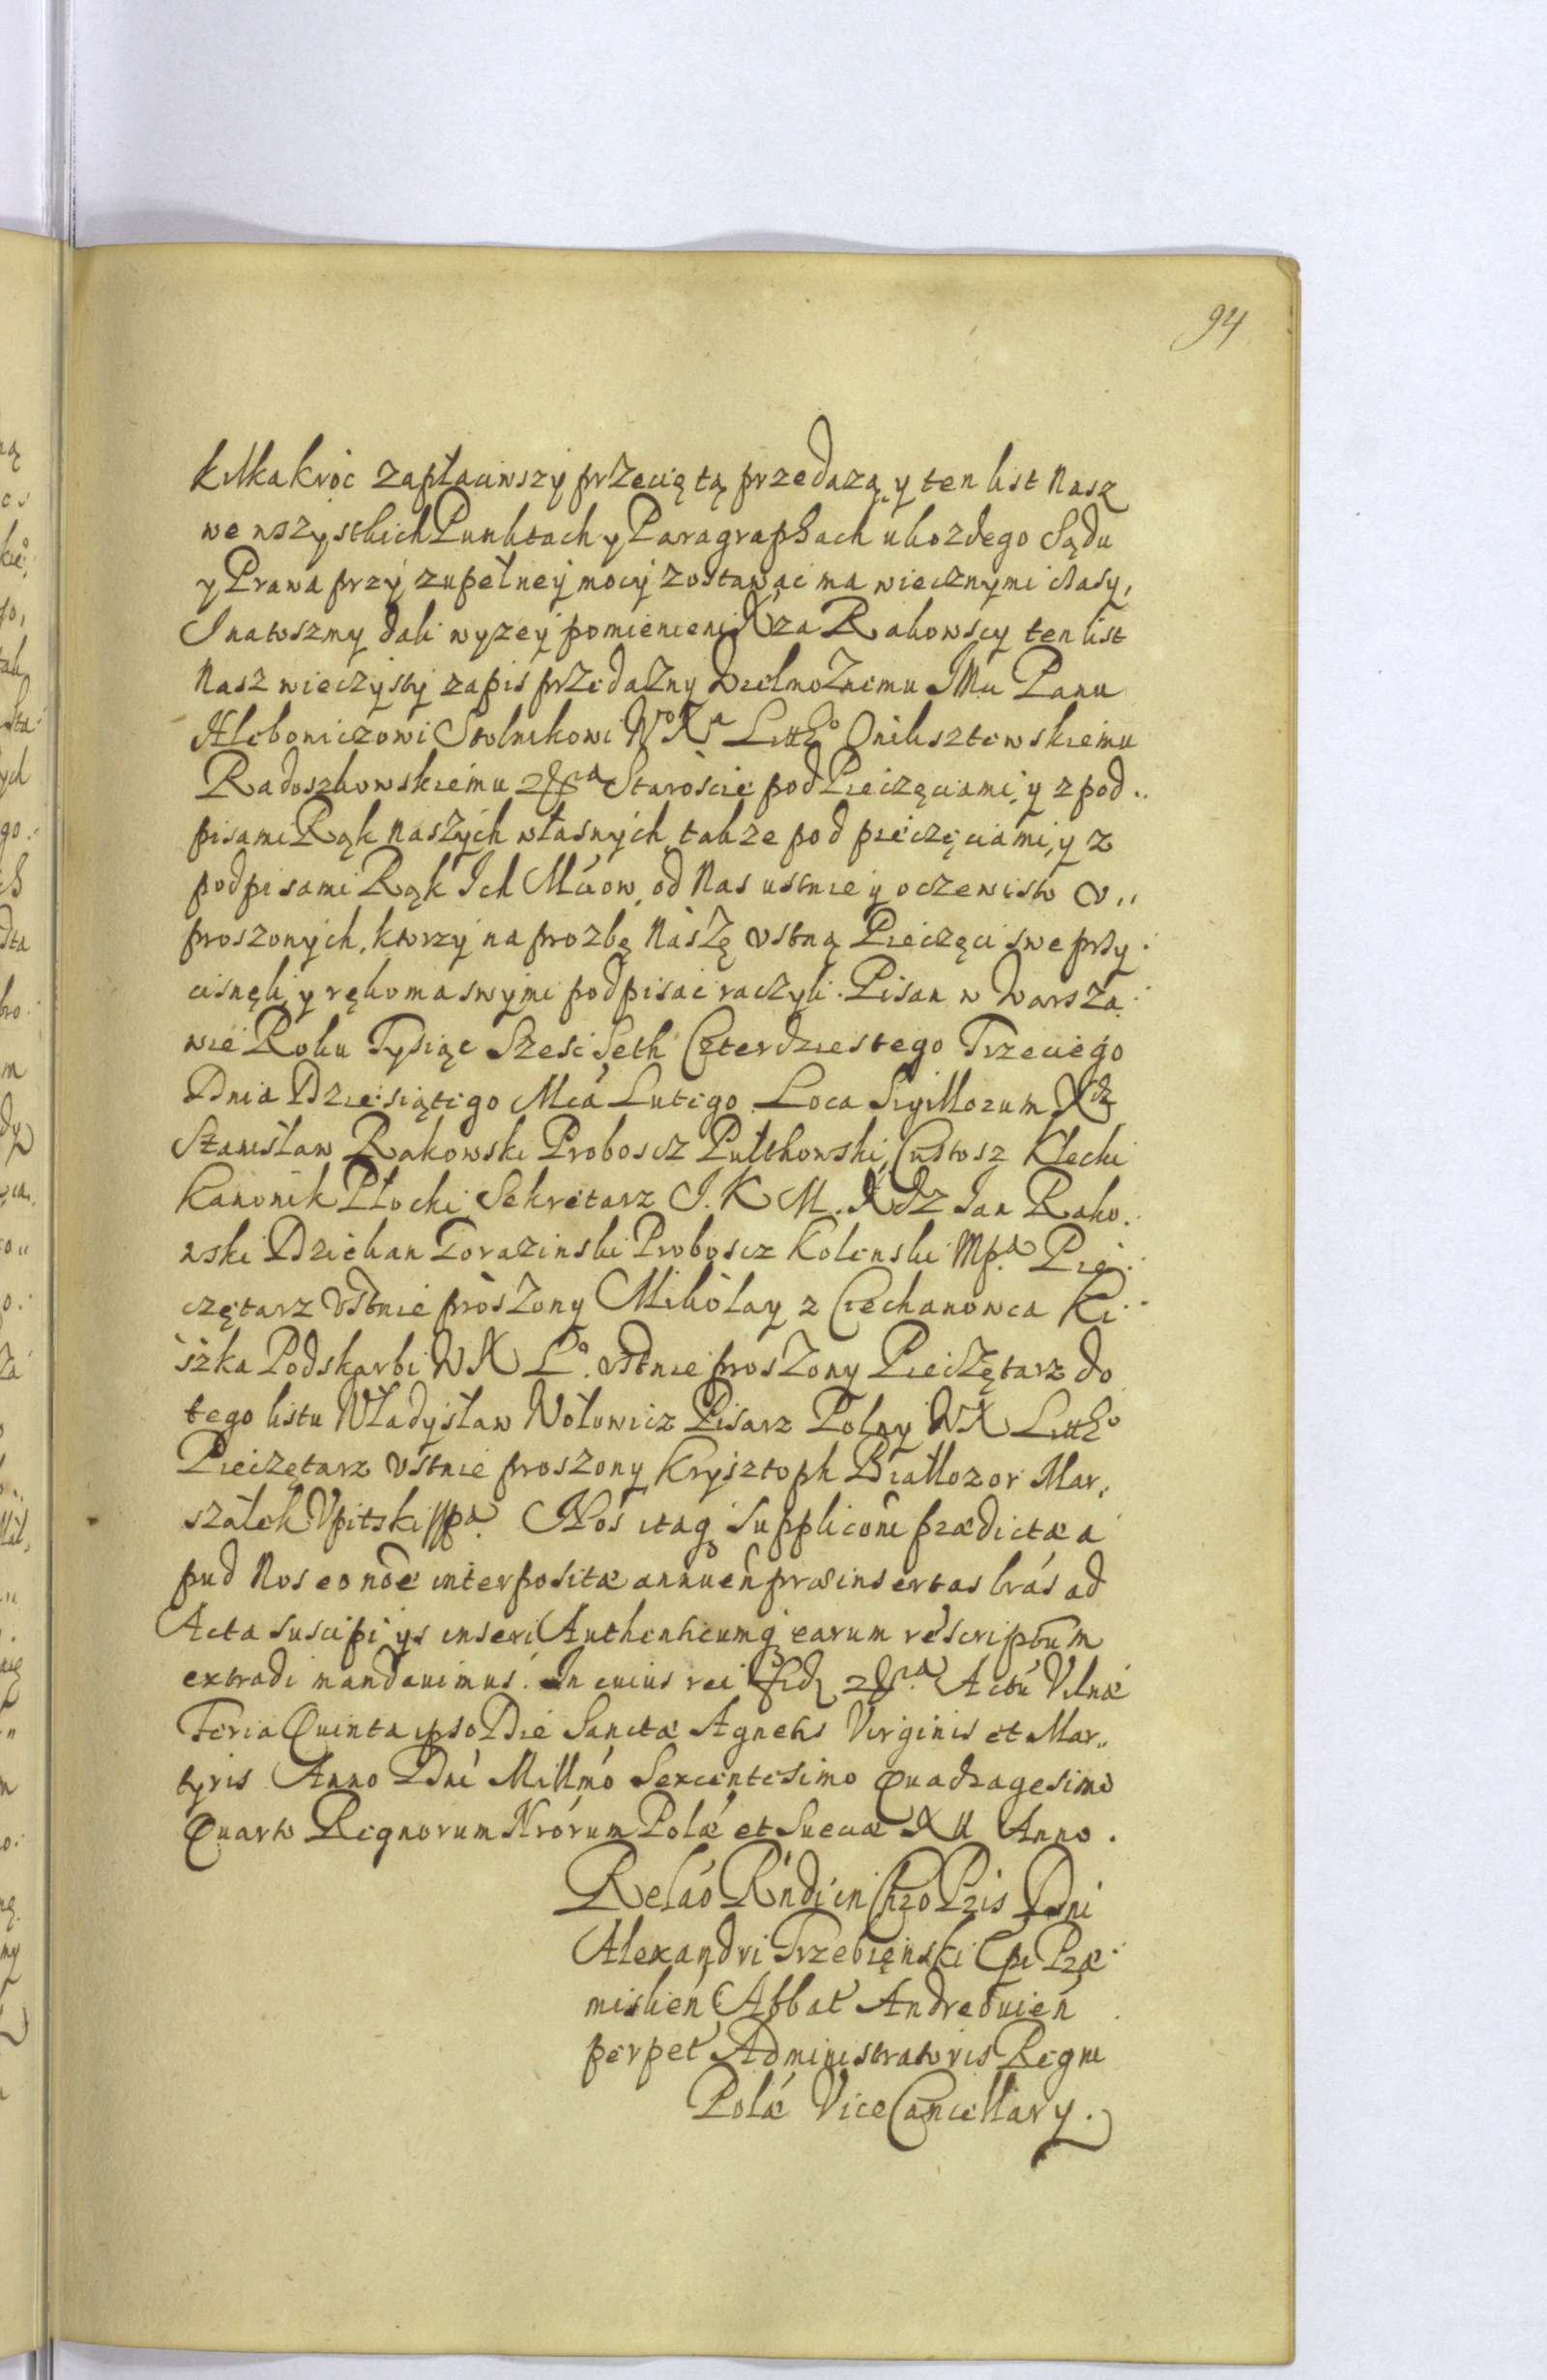 94
kilkakroc zapłaciwszy przecię tą przedazą y ten list Nasz
we wszystkich Punktach y Paragraphach u kozdego Sądu
y Prawa przy zupełney mocy zostawać ma wiecznymi czasy,
I na tosmy dali wyzey pomienieni Xza Rakowscy ten list
Nasz wieczysty zapis przedazny Wielmoznemu JMu Panu
Hleboniczowi Stolnikowi Wo Xa Litto Oniksztewskiemu
Radoszkowskiemu Staroście pod Pieczęciami, y z pod..
pisami Rąk Naszych własnych, takze pod pieczęciami, y z
podpisami Rąk Ich Mciow, od Nas ustnie y oczewisto v,,
proszonych, ktorzy na prozbę Naszę vstną Pieczęci swe przy.
cisnęli, y rękoma swymi podpisac raczyli. Pisan w Warsza.
wie Roku Tysiąc Szesc Seth Czterdziestego Trzeciego
Dnia Dziesiątego Mca Lutego. Loca Sigillorum Xdz
Stanisław Rakowski Proboscz Pułthowski, Custosz Klecki
Kanonik Płocki Sekretarz I. K. M. Xdz Jan Rako.
wski Dziekan Proboscz Kolenski Mpa. Pie.
czętarz Vstnie proszony Mikołay z Ciechanowca Ki..
szka Podskarbi W X Lo. vstnie proszony Pieczętarz do
tego listu Władysław Wołowicz Pisarz Polny W X Littho
Pieczętarz vstnie proszony Krysztoph Białłozor Mar,
szałek Vpitski Mpa. Nos itaq supplicōni prædictæ a
pud Nos eo nōe interpositæ annuen præinsertas lrás ad
Acta suscipi ys inseri Authenticumq earum réscriptum
extradi mandauimus. In cuius rei fid Actú Vilnæ
Feria Quinta ipso Die Sanctæ Agnetis Virginis et Mar,,
tyris Anno Dni Millmó Sexcentesimo Quadragesimo
Quarto Regnorum Nrórum Polæ et Sueciæ XII Anno.
Relaó Rndi in Chro Pris Dni
Alexandri Trzebięnski Epi Præ.
mislien, Abbat Andreouien
perpet Administratoris Regni
Polæ Vice Cancellary.